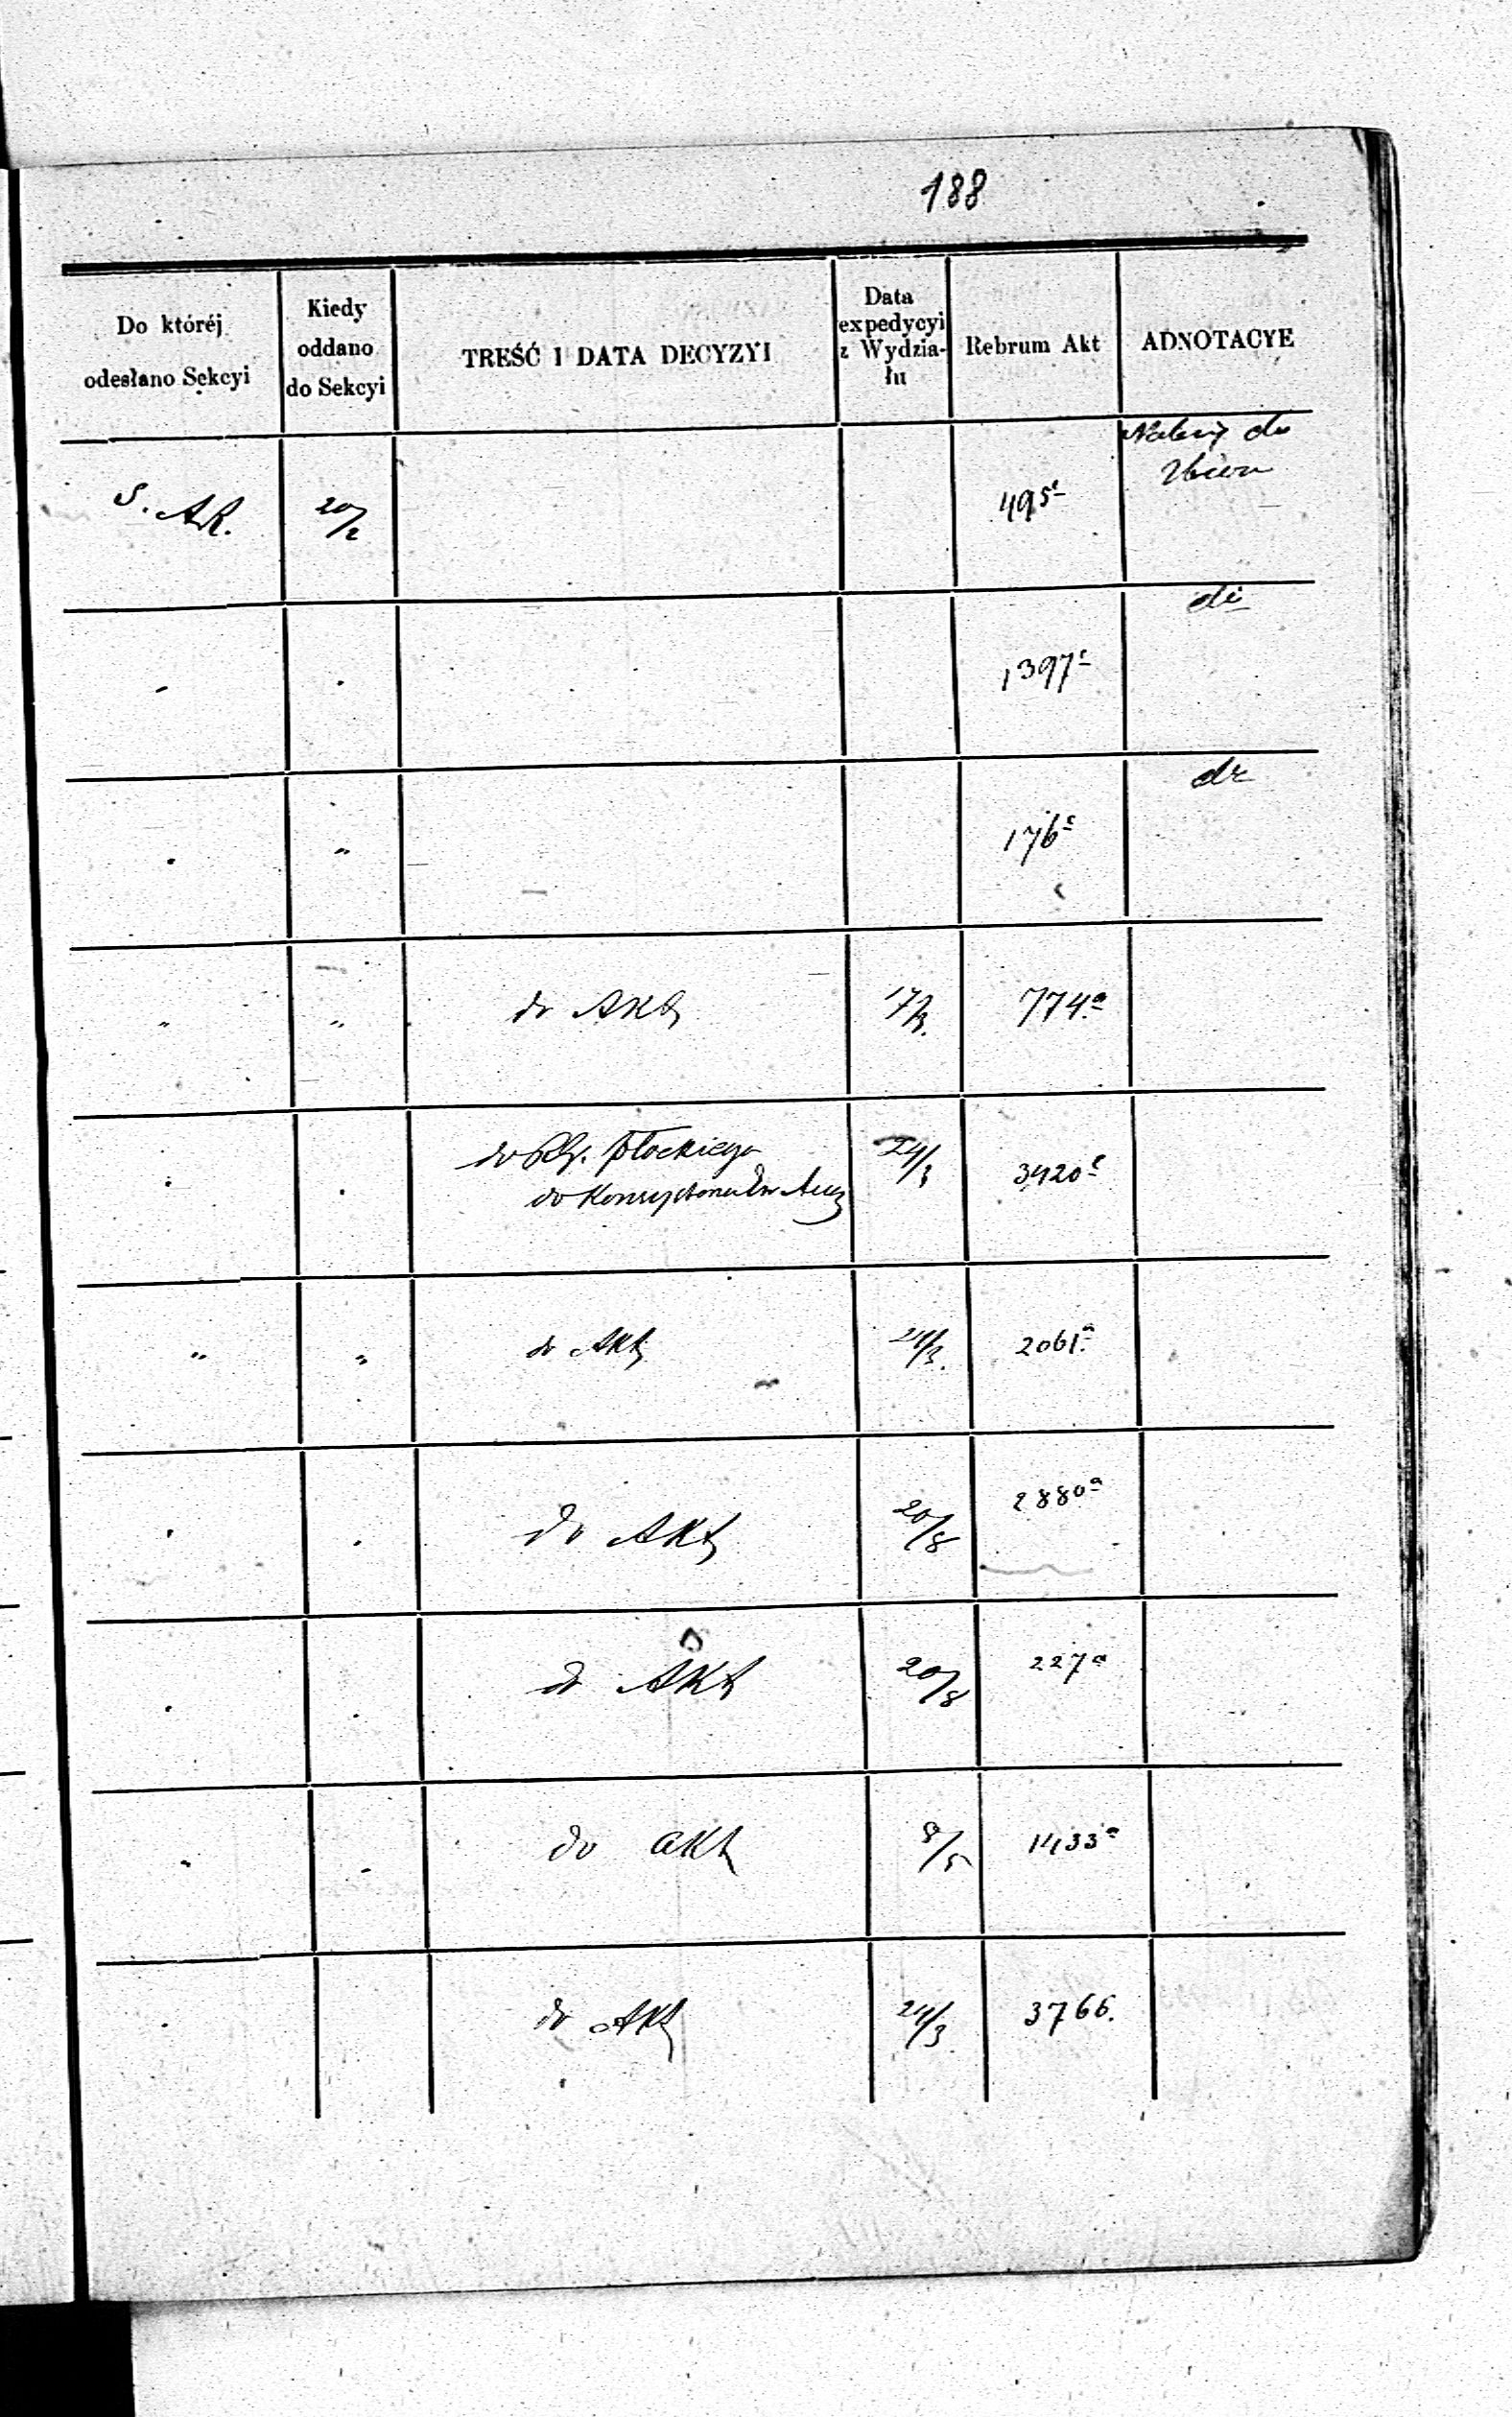 188
Do któréj odesłano Sekcyi
Kiedy oddano do Sekcyi
TREŚĆ I DATA DECYZYI
Data expedycyi z Wydziału
Rebrum Akt
ADNOTACYE
S. AR. 20/2 495c Należy do
Zbioru
" " 1397c do
" " 176c do
" " do Akt 17/3. 774a
" " do Płockiego 24/3 3420c
do Konsystorza
" " do Akt 24/3. 2061a
" " do Akt 20/8 2880a
" " do Akt 20/8 227a
" " do akt 8/5 1433a
" do Akt 24/3 3766.